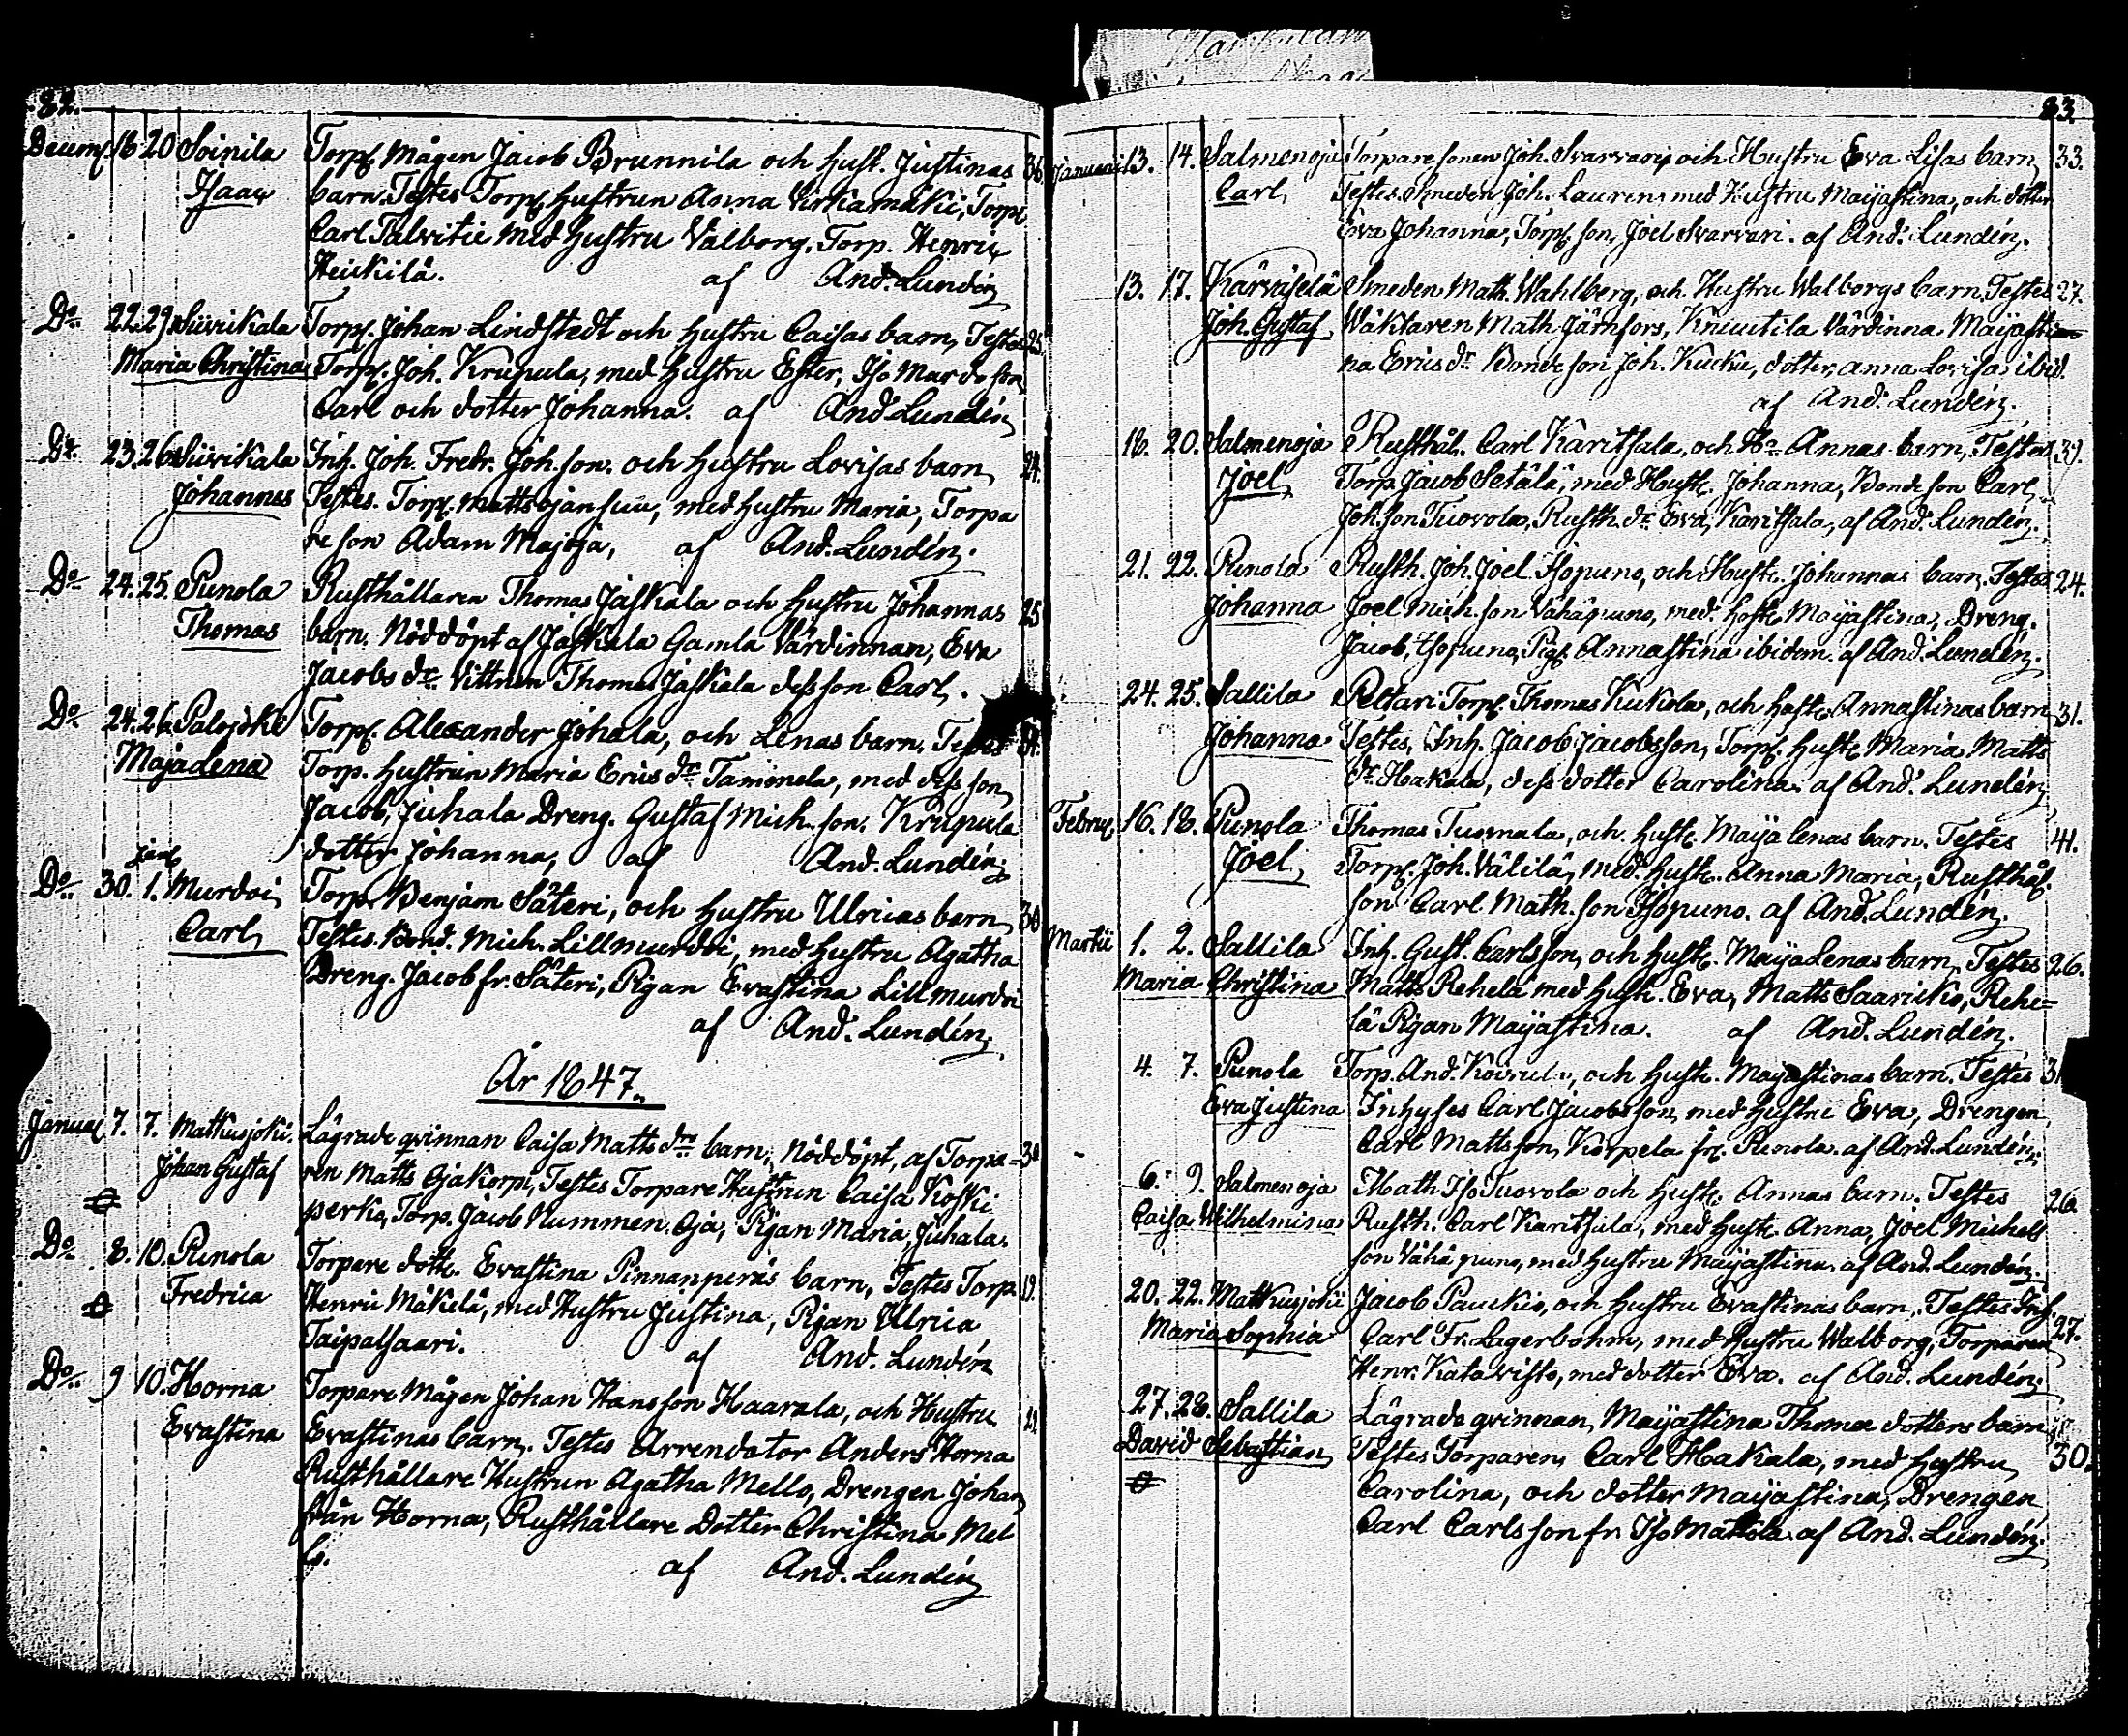 82.
Decemr 18 20 Soinila Torpr Mågen Jacob Brunnila och Hust. Justinas 36.
Isaac barn. Testes Torpr Hustrun Anna Kirkamäki, Torpr
Carl Talvitie med hustru Valborg, Torp. Henric
Heickilä. af And. Lundén
Do 22. 29. Sŭvikala Torpr Johan Lindstedt och hustru Caisas barn, Testes 25.
Maria Christina Torpr Joh. Krupula, med hustru Ester, Iso Mardo son
Carl och dotter Johanna. af And. Lundén
Do 23. 26. Sŭvikala Inh. Joh. Fredr. Joh.son och hustru Lovisas barn 24.
Johannes Testes. Torpr Matts ojansuu, med hustru Maria, Torpa
re son Adam Majoja, af And. Lundén.
Do 24. 25. Punola Rusthållaren Thomas Jaskala och hustru Johannas 25
Thomas barn. Nöddöpt af Jaskala Gamla Värdinnan, Eva
Jacobs dr. Vittnen Thomas Jaskala dess son Carl.
Do 24. 26. Palojoki Torpr Alexander Johala, och Lenas barn, Testes
Majalena Torp. hustrun Maria Erics dr Tammela, med dess son
Jacob, Juhala Dreng. Gustaf Mich.son. Krupula
dotter Johanna, af And. Lundén
Janr
Do 30. 1. Murdoi Torp. Benjam Säteri, och hustru Ulricas barn 30
Carl Testes. Bond. Mich. Lillmurdoi, med hustru Agatha
Dreng. Jacob fr. Säteri, Pigan Evastina Lillmurdoi
af And. Lundén
År 1847.
Januar 7. 7. Mathusjoki. Lägrade qvinnan Caisa Matts drs barn, Nöddöpt, af Torpa- 30
Johan Gustaf ren Matts Ojakorpi, Testes Torpare Hustrun Caisa Koski
perko, Torp. Jacob Nummen Oja, Pigan Maria Juhala.
Do 8. 10. Punola Torpare dottr. Evastina Pinnanperäs barn, Testes Torp. 19.
Fredrica Henric Mäkelä, med Hustru Justina, Pigan Ulrica
Taipalsaari. af And. Lundén
Do 9 10. Horna Torpare Mågen Johan Hansson Haarala, och Hustru 21.
Evastina Evastinas barn. Testes Arrendator Anders Horna
Rusthållare Hustrun Agatha Mello, Drengen Johan
från Horna, Rusthållare Dotter Christina Mel
lo. af And. Lundén
83.
Januari 13. 14. Salmenoja Torpare sonen Joh. Svarvari och Hustru Eva Lisas barn 33.
Carl Testes. Smeden Joh. Laurens med Hustru Majastina, och dotter
Eva Johanna, Torpr son, Joel Svarvari. af And. Lundén.
13. 17. Kärväselä Smeden Math. Wahlberg, och Hustru Walborgs barn, Testes 27.
Joh. Gustaf Wäktaren Math Järnfors, Kniuttila Värdinna Majasti
na Erics dr Bonde son Joh. Kucku, dotter Anna Lovisa ibid.
af And. Lundén.
18. 20. Salmenoja Rusthål. Carl Karitsala, och Ha Annas barn, Testes 39.
Joel Torp. Jacob Setälä, med Hustr. Johanna, Bonde son Carl
Joh.son Tuovola, Rusth. dr Eva Karitsala, af And. Lundén.
21. 22. Punola Rusth. Joh. Joel Isopuno, och Hustr. Johannas barn, Testes 24.
Johanna Joel Mich.son Vähäpuno, med hustr Majastina, Dreng.
Jacob, Isopuno, Pigr Annastina ibidem. af And. Lundén.
24. 25. Sallila Peltari Torpr Thomas Kuckola, och hustr Annastinas barn 31.
Johanna Testes, Inh. Jacob Jacobsson, Torpr hustr Maria Matts
dr Hakala, dess dotter Carolina. af And. Lundén
Februr 16. 18. Punola Thomas Tuomala, och hustr. Maja Lenas barn. Testes 41.
Joel Torpr Joh. Välilä, med hustr. Anna Maria, Rusthål.
son Carl Math.son Isopuno. af And. Lundén.
Martii 1. 2. Sallila Inh. Gust. Carlsson, och hustr. Maja Lenas barn, Testes 26.
Maria Christina Matts Rehelä med hustr. Eva, Matts Saaricko, Rehe-
lä Pigan Majastina. af And. Lundén.
4. 7. Punola Torp. And. Koivula, och hustr. Majastinas barn. Testes
Eva Justina Inhyses Carl Jacobsson, med hustru Eva, Drengen
Carl Mattsson, Korpela fr. Punola. af And. Lundén.
6. 9. Salmenoja Math Iso Tuovola och hustr. Annas barn. Testes 26
Caisa Wilhelmina Rusth. Carl Karitsala, med hustr. Anna, Joel Michels
son Vähäpuno, med hustru Majastina. af And. Lundén.
20. 22. Mathusjoki Jacob Pauckio, och hustru Evastinas barn, Testes Inh. 27.
Maria Sophia Carl Fr. Lagerbohm, med hustru Walborg, Torparen
Henr. Katavisto, med dotter Eva. af And. Lundén.
27. 28. Sallila Lägrade qvinnan, Majastina Thomæ dotters barn
David Sebastian Testes Torparen Carl Hakala, med hustru 30.
Carolina, och dotter Majastina, Drengen
Carl Carlsson fr. Iso Mattola af And. Lundén.